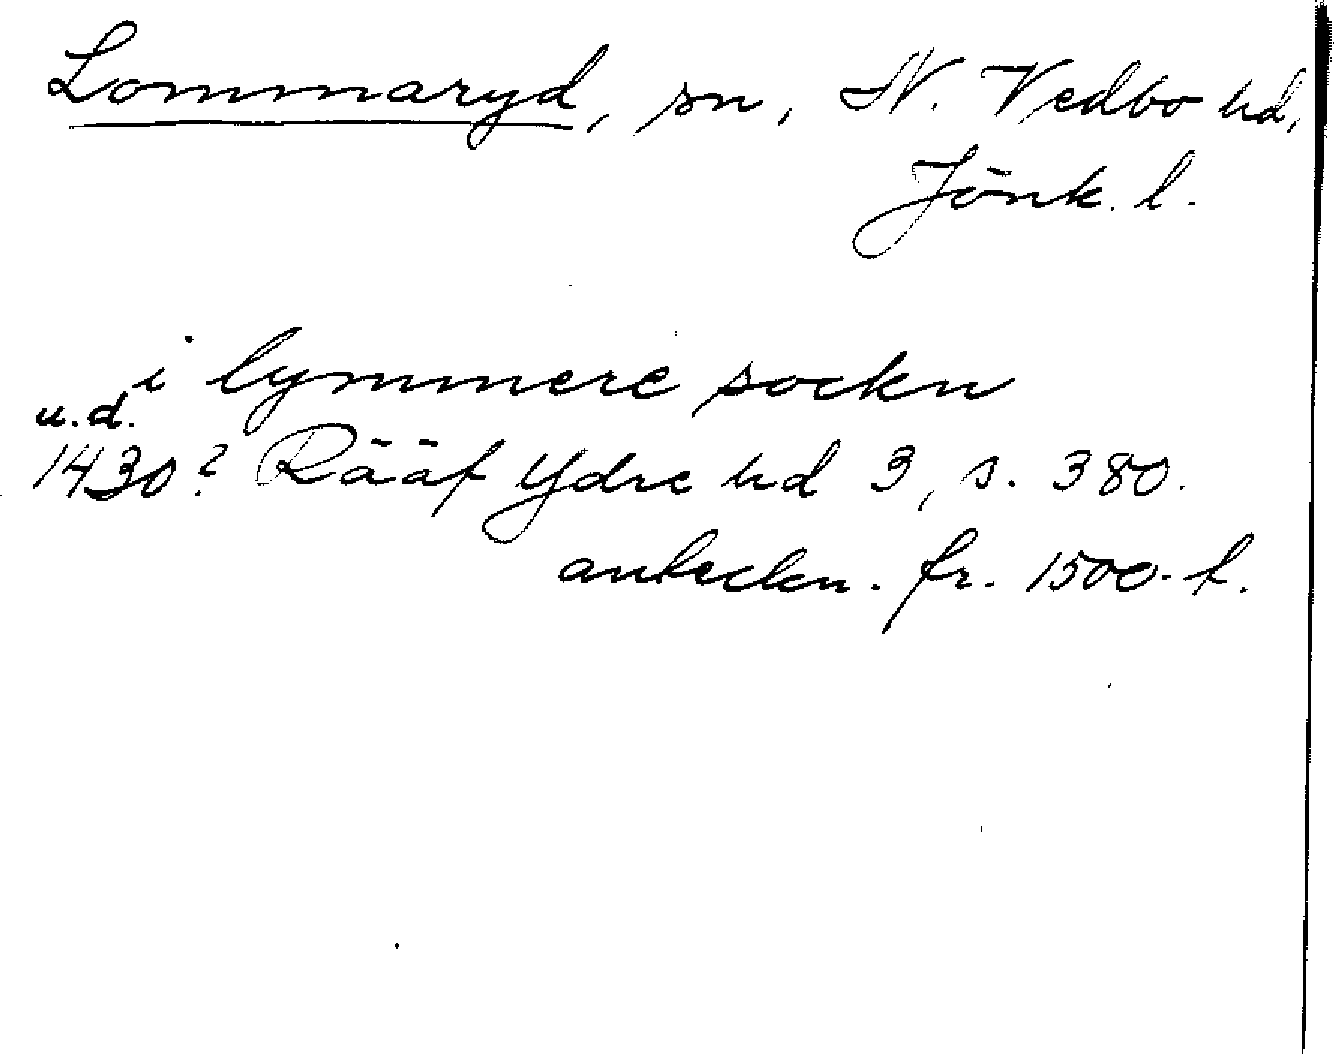 Lommaryd, sn, N. Vedbo hd,
Jönk. l.
i lymmere sockn
u.d.
1430? Rääf Ydre hd 3, s. 380.
anteckn. fr. 1500-t.